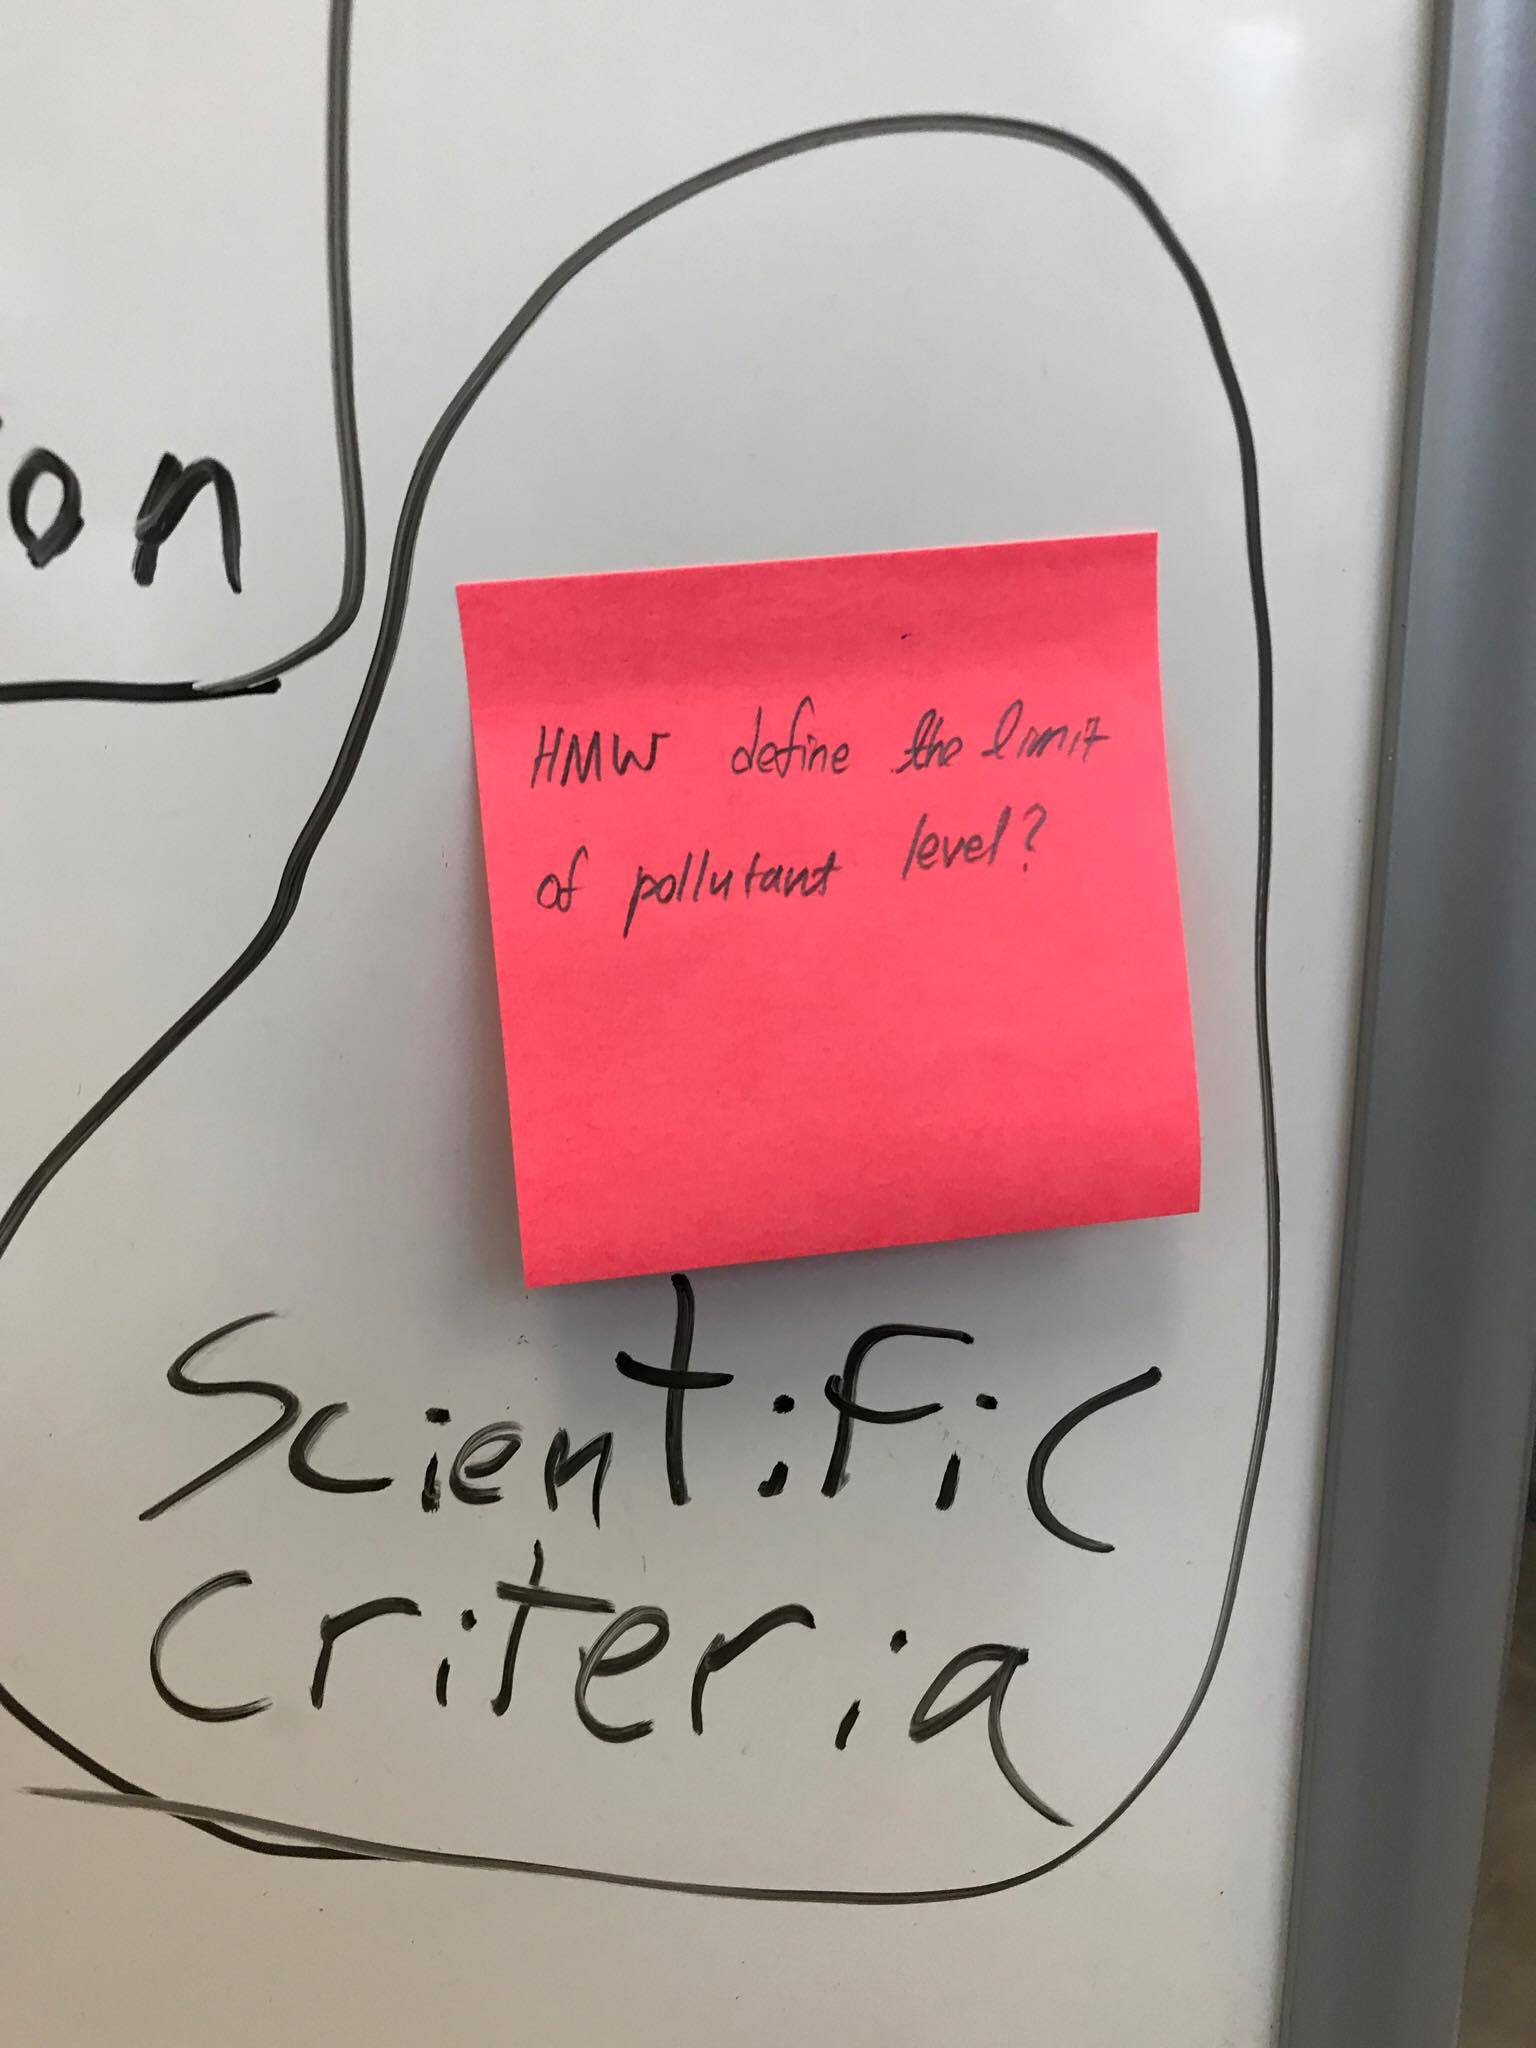 on
HMW define the limit
of pollutant level?
Scientific
Criteria